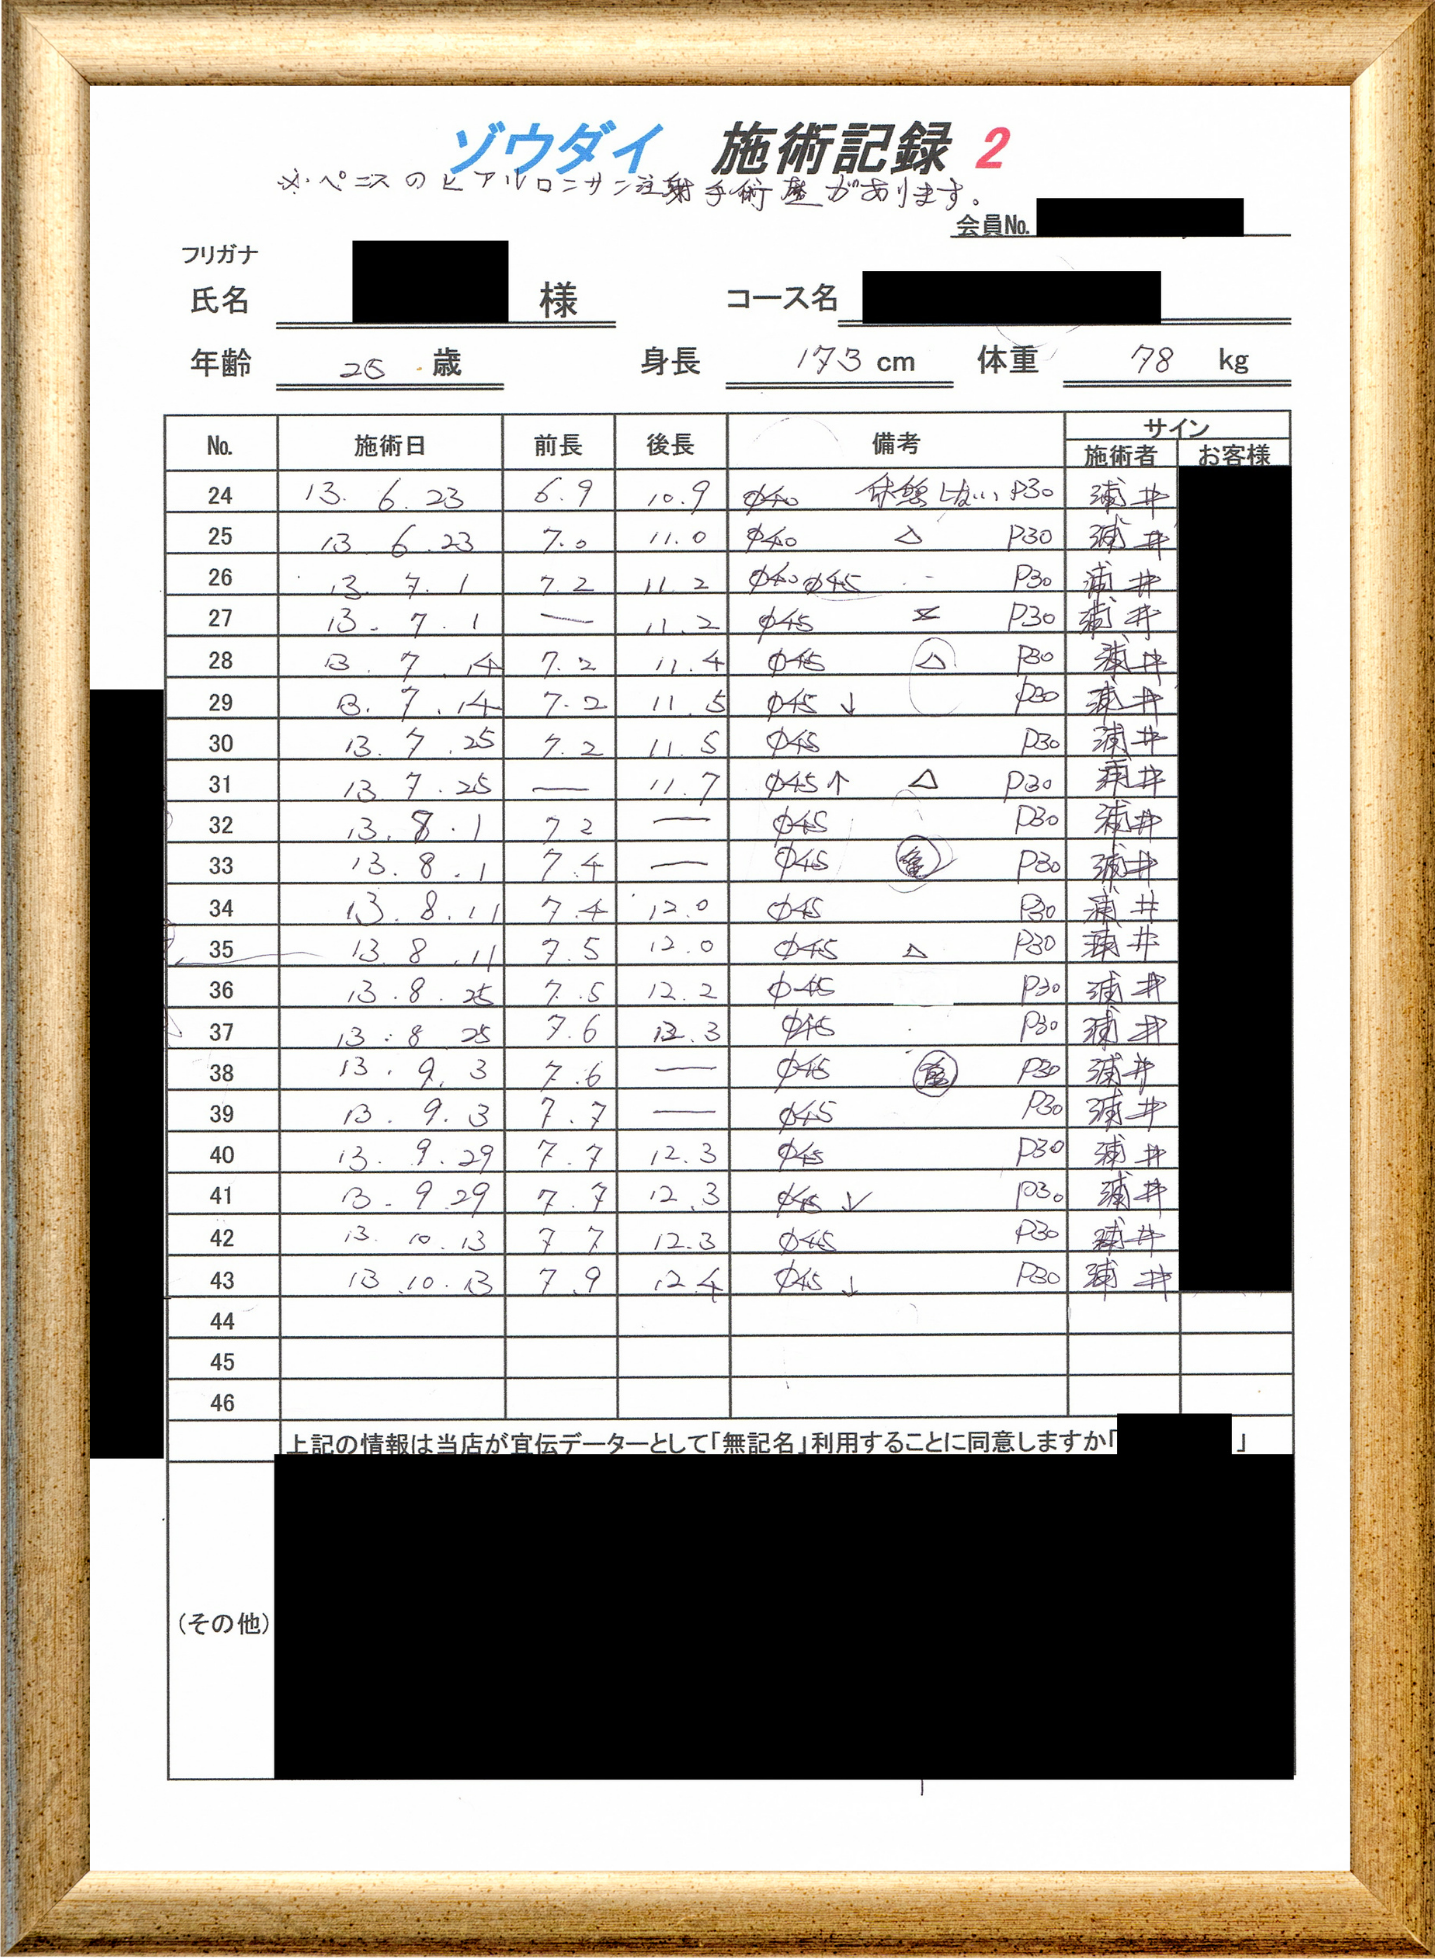 ゾウダイ 施術記録 2
※ペニスのヒアルロンサン注射手術歴があります。
会員No.
フリガナ
氏名 様 コース名
年齢 歳 身長 173 cm 体重 78 kg
No. 施術日 前長 後長 備考 サイン
施術者 お客様
24 13. 6. 23 6.9 10.9 φ40 休憩しない P30 浦井
25 13 6.23 7.0 11.0 φ40 △ P30 浦井
26 13. 7. 1 7.2 11.2 φ40 φ45 P30 浦井
27 13. 7. 1 — 11.2 φ45 P30 浦井
28 13. 7.14 7.2 11.4 φ45 △ P30 浦井
29 13. 7.14 7.2 11.5 φ45 ↓ P30 浦井
30 13. 7.25 7.2 11.5 φ45 P30 浦井
31 13 7.25 — 11.7 φ45↑ △ P30 浦井
32 13. 8.1 7.2 — φ45 P30 浦井
33 13. 8.1 7.4 — φ45 P30 浦井
34 13. 8.11 7.4 12.0 φ45 P30 浦井
35 13. 8.11 7.5 12.0 φ45 △ P30 浦井
36 13. 8.25 7.5 12.2 φ45 P30 浦井
37 13. 8 25 7.6 12.3 φ45 P30 浦井
38 13. 9. 3 7.6 — φ45 P30 浦井
39 13. 9. 3 7.7 — φ45 P30 浦井
40 13. 9.29 7.7 12.3 φ45 P30 浦井
41 13. 9.29 7.7 12.3 φ45 ↓ P30 浦井
42 13. 10. 13 7 7 12.3 φ45 P30 浦井
43 13. 10. 13 7.9 12.4 φ45 ↓ P30 浦井
44
45
46
上記の情報は当店が宣伝データーとして「無記名」利用することに同意しますか「 」
(その他)